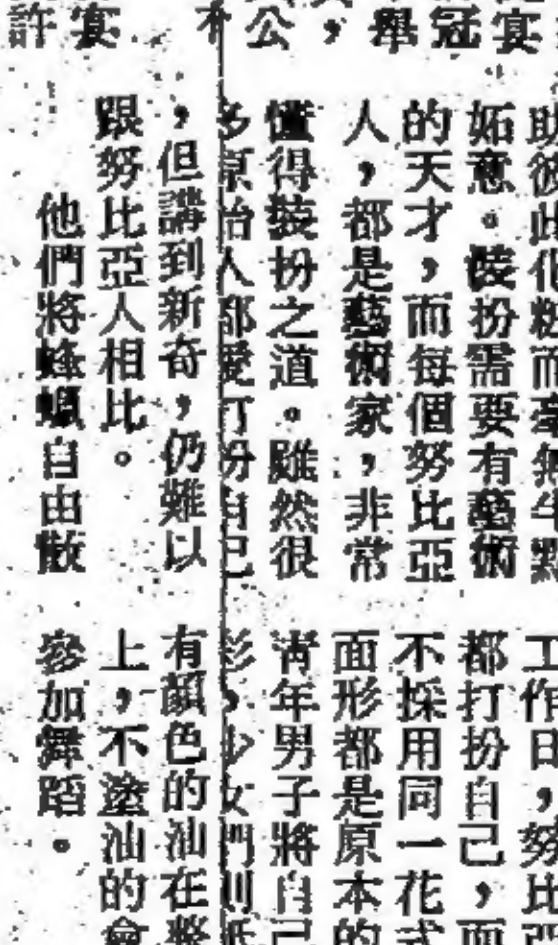 宴
冠
舉
，
公
宴
許
助彼此化粧而毫無半點
妬意。裝扮需要有藝術
的天才，而每個努比亞
人，都是藝術家，非常
懂得裝扮之道。雖然很
多原始人都愛打扮自己
，但講到新奇，仍難以
跟努比亞人相比。
他們將蜂蠟自由散
工作日，努比亞
都打扮自己，而
不採用同一花式
面形都是原本的
青年男子將自己
彩，少女們則祇
有顏色的油在整
上，不塗油的會
參加舞蹈。